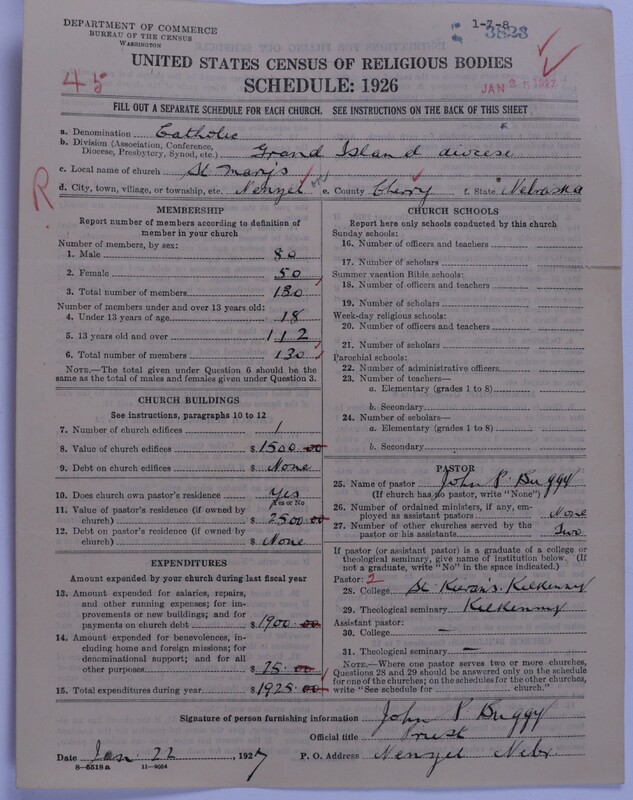 DEPARTMENT OF COMMERCE
BUREAU OF THE CENSUS
WASHINGTON
1-7-8
3823
UNITED STATES CENSUS OF RELIGIOUS BODIES
45
SCHEDULE: 1926
JAN 25 1927
FILL OUT A SEPARATE SCHEDULE FOR EACH CHURCH. SEE INSTRUCTIONS ON THE BACK OF THIS SHEET
a. Denomination Catholic
b. Division (Association, Conference, Diocese, Presbytery, Synod, etc.) Grand Island diocese
c. Local name of church St Mary's
R
d. City, town, village, or township, etc. Nenzel e. County Cherry f. State Nebraska
MEMBERSHIP
Report number of members according to definition of
member in your church
Number of members, by sex:
1. Male 80
2. Female 50
3. Total number of members 130
Number of members under and over 13 years old:
4. Under 13 years of age 18
5. 13 years old and over 112
6. Total number of members 130
NOTE.—The total given under Question 6 should be
same as the total of males and females given under Question 3.
CHURCH BUILDINGS
See instructions, paragraphs 10 to 12
7. Number of church edifices 1
8. Value of church edifices $ 1500 00
9. Debt on church edifices $ None
10. Does church own pastor's residence Yes
Yes or No
11. Value of pastor's residence (if owned by
church) $ 2500 00
12. Debt on pastor's residence (if owned by
church) $ None
EXPENDITURES
Amount expended by your church during last fiscal year
13. Amount expended for salaries, repairs,
and other running expenses; for im-
provements or new buildings; and for
payments on church debt $ 1900. 00
14. Amount expended for benevolences, in-
cluding home and foreign missions; for
denominational support; and for all
other purposes $ 25. 00
15. Total expenditures during year $ 1925. 00
CHURCH SCHOOLS
Report here only schools conducted by this church
Sunday schools:
16. Number of officers and teachers
17. Number of scholars
Summer vacation Bible schools:
18. Number of officers and teachers
19. Number of scholars
Week-day religious schools:
20. Number of officers and teachers
21. Number of scholars
Parochial schools:
22. Number of administrative officers
23. Number of teachers—
a. Elementary (grades 1 to 8)
b. Secondary
24. Number of scholars—
a. Elementary (grades 1 to 8)
b. Secondary
PASTOR
25. Name of pastor John P. Buggy
(If church has no pastor, write "None")
26. Number of ordained ministers, if any, em-
ployed as assistant pastors None
27. Number of other churches served by the
pastor or his assistants Two
If pastor (or assistant pastor) is a graduate of a college or
theological seminary, give name of institution below. (If
not a graduate, write "No" in the space indicated.)
Pastor: 2
28. College St Kieran's Kilkenny
29. Theological seminary Kilkenny
Assistant pastor:
30. College —
31. Theological seminary —
NOTE.—Where one pastor serves two or more churches,
Questions 28 and 29 should be answered only on the schedule
for one of the churches; on the schedules for the other churches,
write "See schedule for church."
Signature of person furnishing information John P Buggy
Official title Priest
Date Jan. 22, 1927 P. O. Address Nenzel Nebr.
8—5518a 11—9054